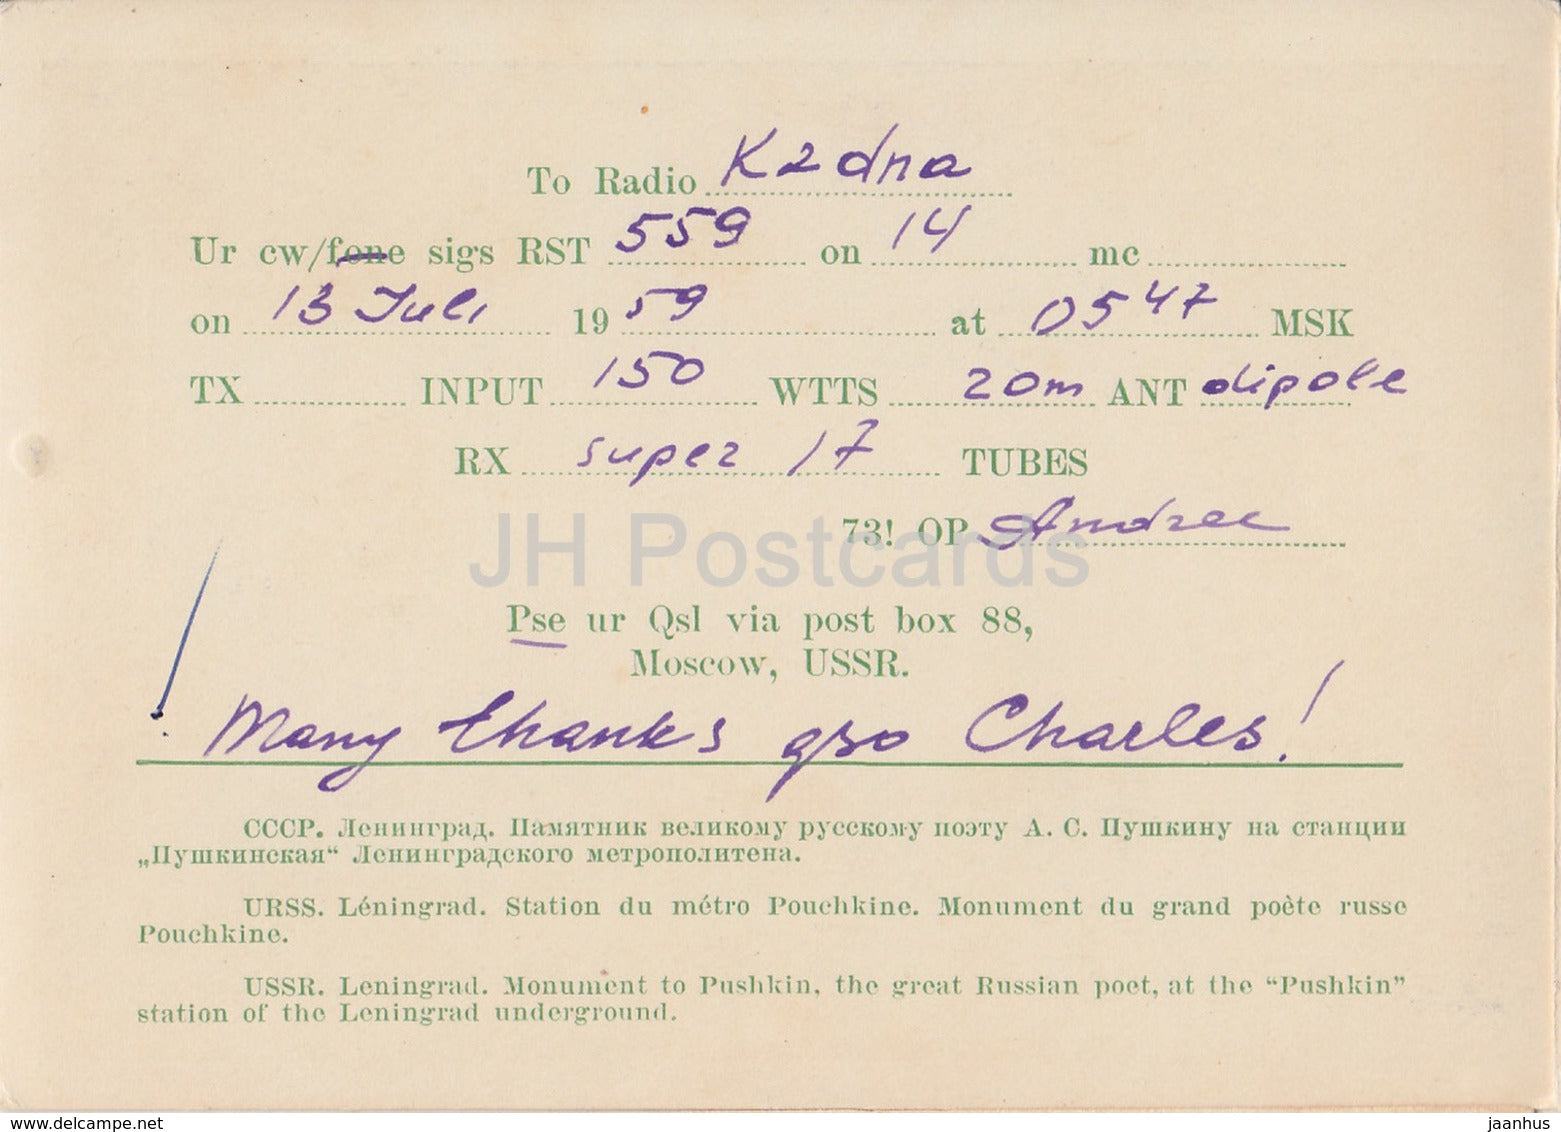 To Radio K2dna
Ur cw/fone sigs RST 559 on 14 mc
on 13 Juli 1959 at 0547 MSK
TX INPUT 150 WTTS 20m ANT dipole
RX super 17 TUBES
73! OP Andree
JH Postcards
Pse ur Qsl via post box 88,
Moscow, USSR.
! Many thanks qso Charles!
СССР. Ленинград. Памятник великому русскому поэту А. С. Пушкину на станции
„Пушкинская“ Ленинградского метрополитена.
URSS. Léningrad. Station du métro Pouchkine. Monument du grand poète russe
Pouchkine.
USSR. Leningrad. Monument to Pushkin, the great Russian poet, at the “Pushkin”
station of the Leningrad underground.
delcampe.net
jaanhus